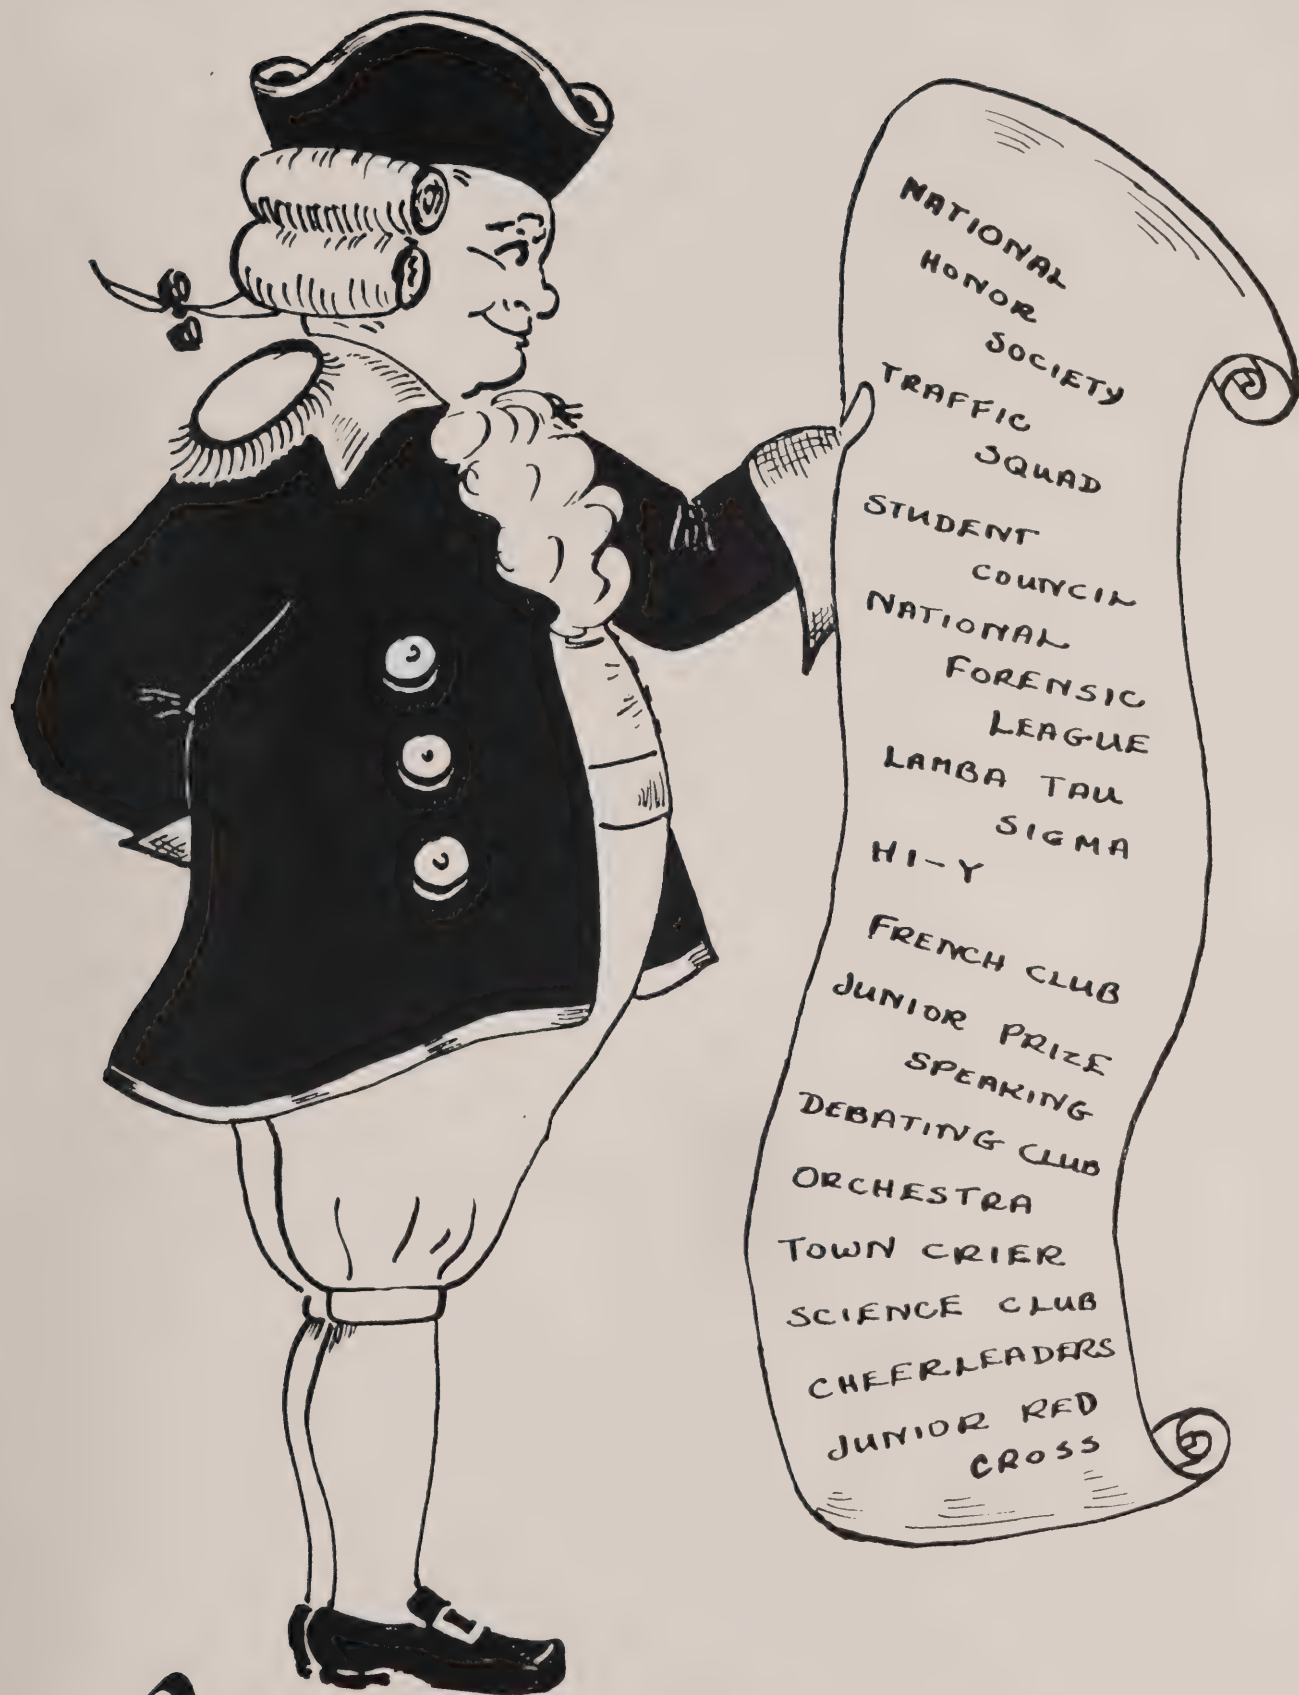 NATIONAL
HONOR
SOCIETY
TRAFFIC
SQUAD
STUDENT
COUNCIL
NATIONAL
FORENSIC
LEAGUE
LAMBA TAU
SIGMA
HI-Y
FRENCH CLUB
JUNIOR PRIZE
SPEAKING
DEBATING CLUB
ORCHESTRA
TOWN CRIER
SCIENCE CLUB
CHEERLEADERS
JUNIOR RED
CROSS